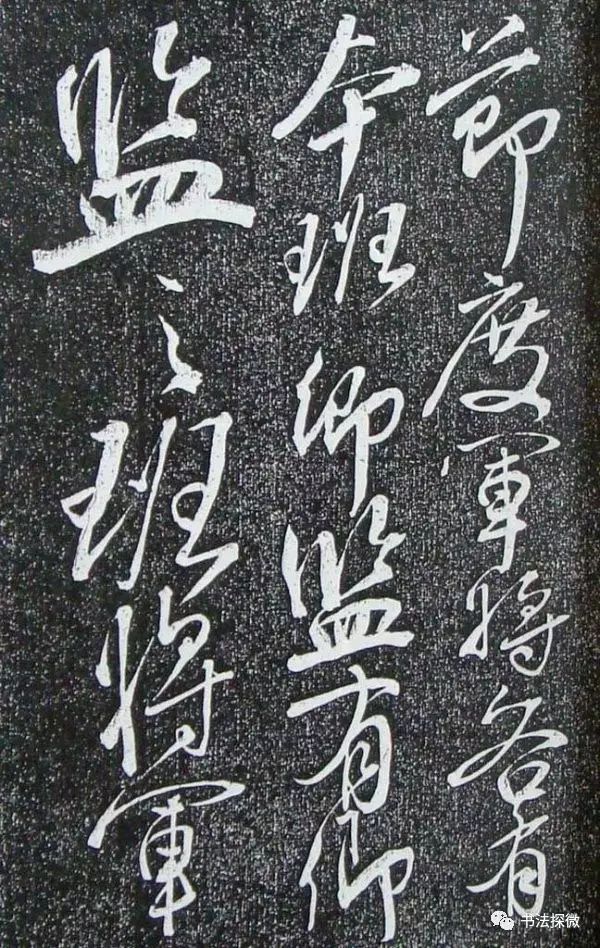 節度軍將各有
本班卿監有卿
監之班將軍
书法探微